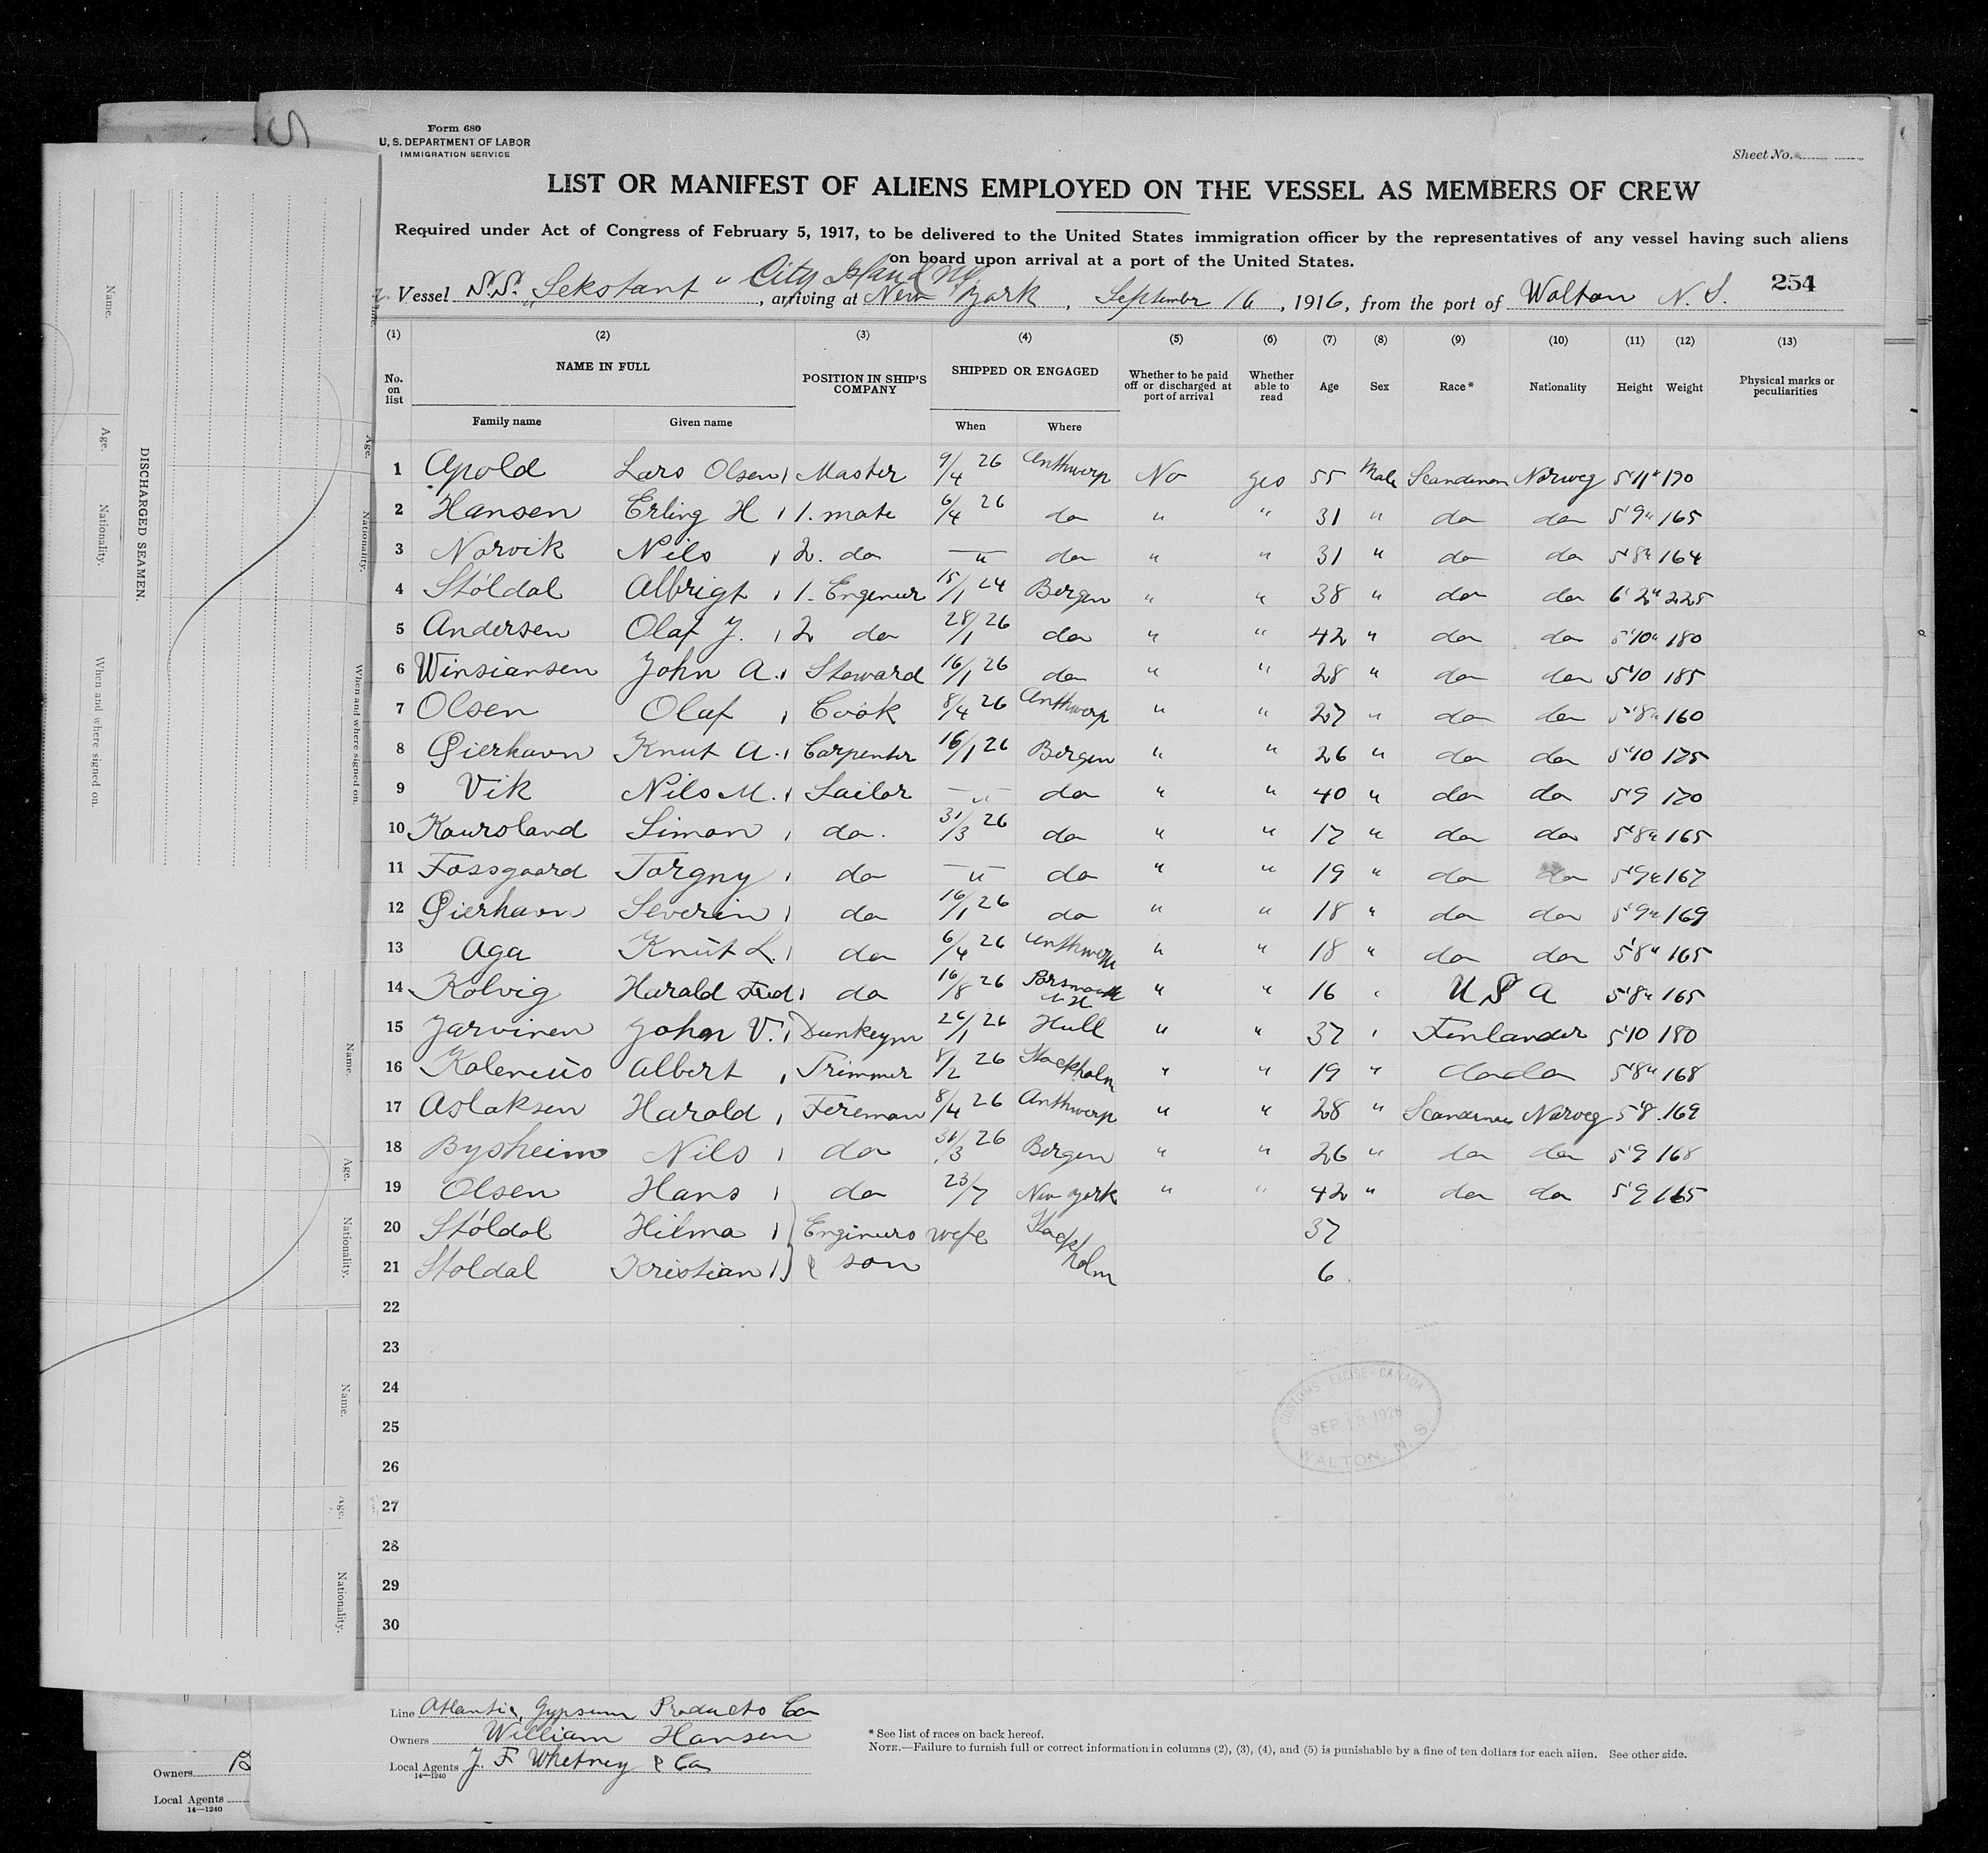 Form 680
U. S. DEPARTMENT OF LABOR
IMMIGRATION SERVICE
Sheet No.
LIST OR MANIFEST OF ALIENS EMPLOYED ON THE VESSEL AS MEMBERS OF CREW
Required under Act of Congress of February 5, 1917, to be delivered to the United States immigration officer by the representatives of any vessel having such aliens
on board upon arrival at a port of the United States.
City Island NY
254
Vessel S.S. "Sekstant", arriving at New York, September 16, 1916, from the port of Walton N. S.
(1) (2) (3) (4) (5) (6) (7) (8) (9) (10) (11) (12) (13)
No. on list NAME IN FULL POSITION IN SHIP'S COMPANY SHIPPED OR ENGAGED Whether to be paid off or discharged at port of arrival Whether able to read Age Sex Race* Nationality Height Weight Physical marks or peculiarities
Family name Given name When Where
1 Apold Lars Olsen Master 9/4 26 Anthwerp No yes 55 Male Scandinan Norweg 5'11" 170
2 Hansen Erling H 1. mate 6/4 26 do " " 31 " do do 5'9" 165
3 Norvik Nils 2. do —"— do " " 31 " do do 5'8" 164
4 Stöldal Albrigt 1. Engineer 15/1 24 Bergen " " 38 " do do 6'2" 225
5 Andersen Olaf J. 2 do 28/1 26 do " " 42 " do do 5'10" 180
6 Winsiansen John A. Steward 16/1 26 do " " 28 " do do 5'10 185
7 Olsen Olaf Cook 8/4 26 Anthwerp " " 27 " do do 5'8" 160
8 Gierhavn Knut A. Carpenter 16/1 26 Bergen " " 26 " do do 5'10 175
9 Vik Nils M. Sailor —"— do " " 40 " do do 5'9 170
10 Kaursland Simon do. 31/3 26 do " " 17 " do do 5'8" 165
11 Fossgaard Torgny do —"— do " " 19 " do do 5'9" 167
12 Gierhavn Severin do 16/1 26 do " " 18 " do do 5'9" 169
13 Aga Knut L. do 6/4 26 Anthwerp " " 18 " do do 5'8" 165
14 Kolvig Harald Fred do 16/8 26 Porsmouth N.H. " " 16 " U S A 5'8" 165
15 Jarvinen John V. Dunkeym 26/1 26 Hull " " 37 " Finlander 5'10 180
16 Kalenius Albert Trimmer 8/2 26 Stockholm " " 19 " do do 5'8" 168
17 Aslaksen Harald Fireman 8/4 26 Anthwerp " " 28 " Scandinav Norweg 5'8 169
18 Bysheim Nils do 31/3 26 Bergen " " 26 " do do 5'9 168
19 Olsen Hans do 23/7 New York " " 42 " do do 5'9 165
20 Stöldal Hilma Engineers wife Stock 37
21 Stoldal Kristian & son holm 6
22
23
24
25
26
27
28
29
30
CUSTOMS-EXCISE-CANADA
SEP 1926
WALTON, N. S.
Line Atlantic Gypsum Products Co
Owners William Hansen
Local Agents J. F. Whitney & Co
14—1240
* See list of races on back hereof.
NOTE.—Failure to furnish full or correct information in columns (2), (3), (4), and (5) is punishable by a fine of ten dollars for each alien. See other side.
DISCHARGED SEAMEN.
Name.
Age.
Nationality.
When and where signed on.
Age.
Nationality.
When and where signed on.
Name.
Age.
Nationality.
Name.
Age.
Nationality.
Owners B
Local Agents
14—1240